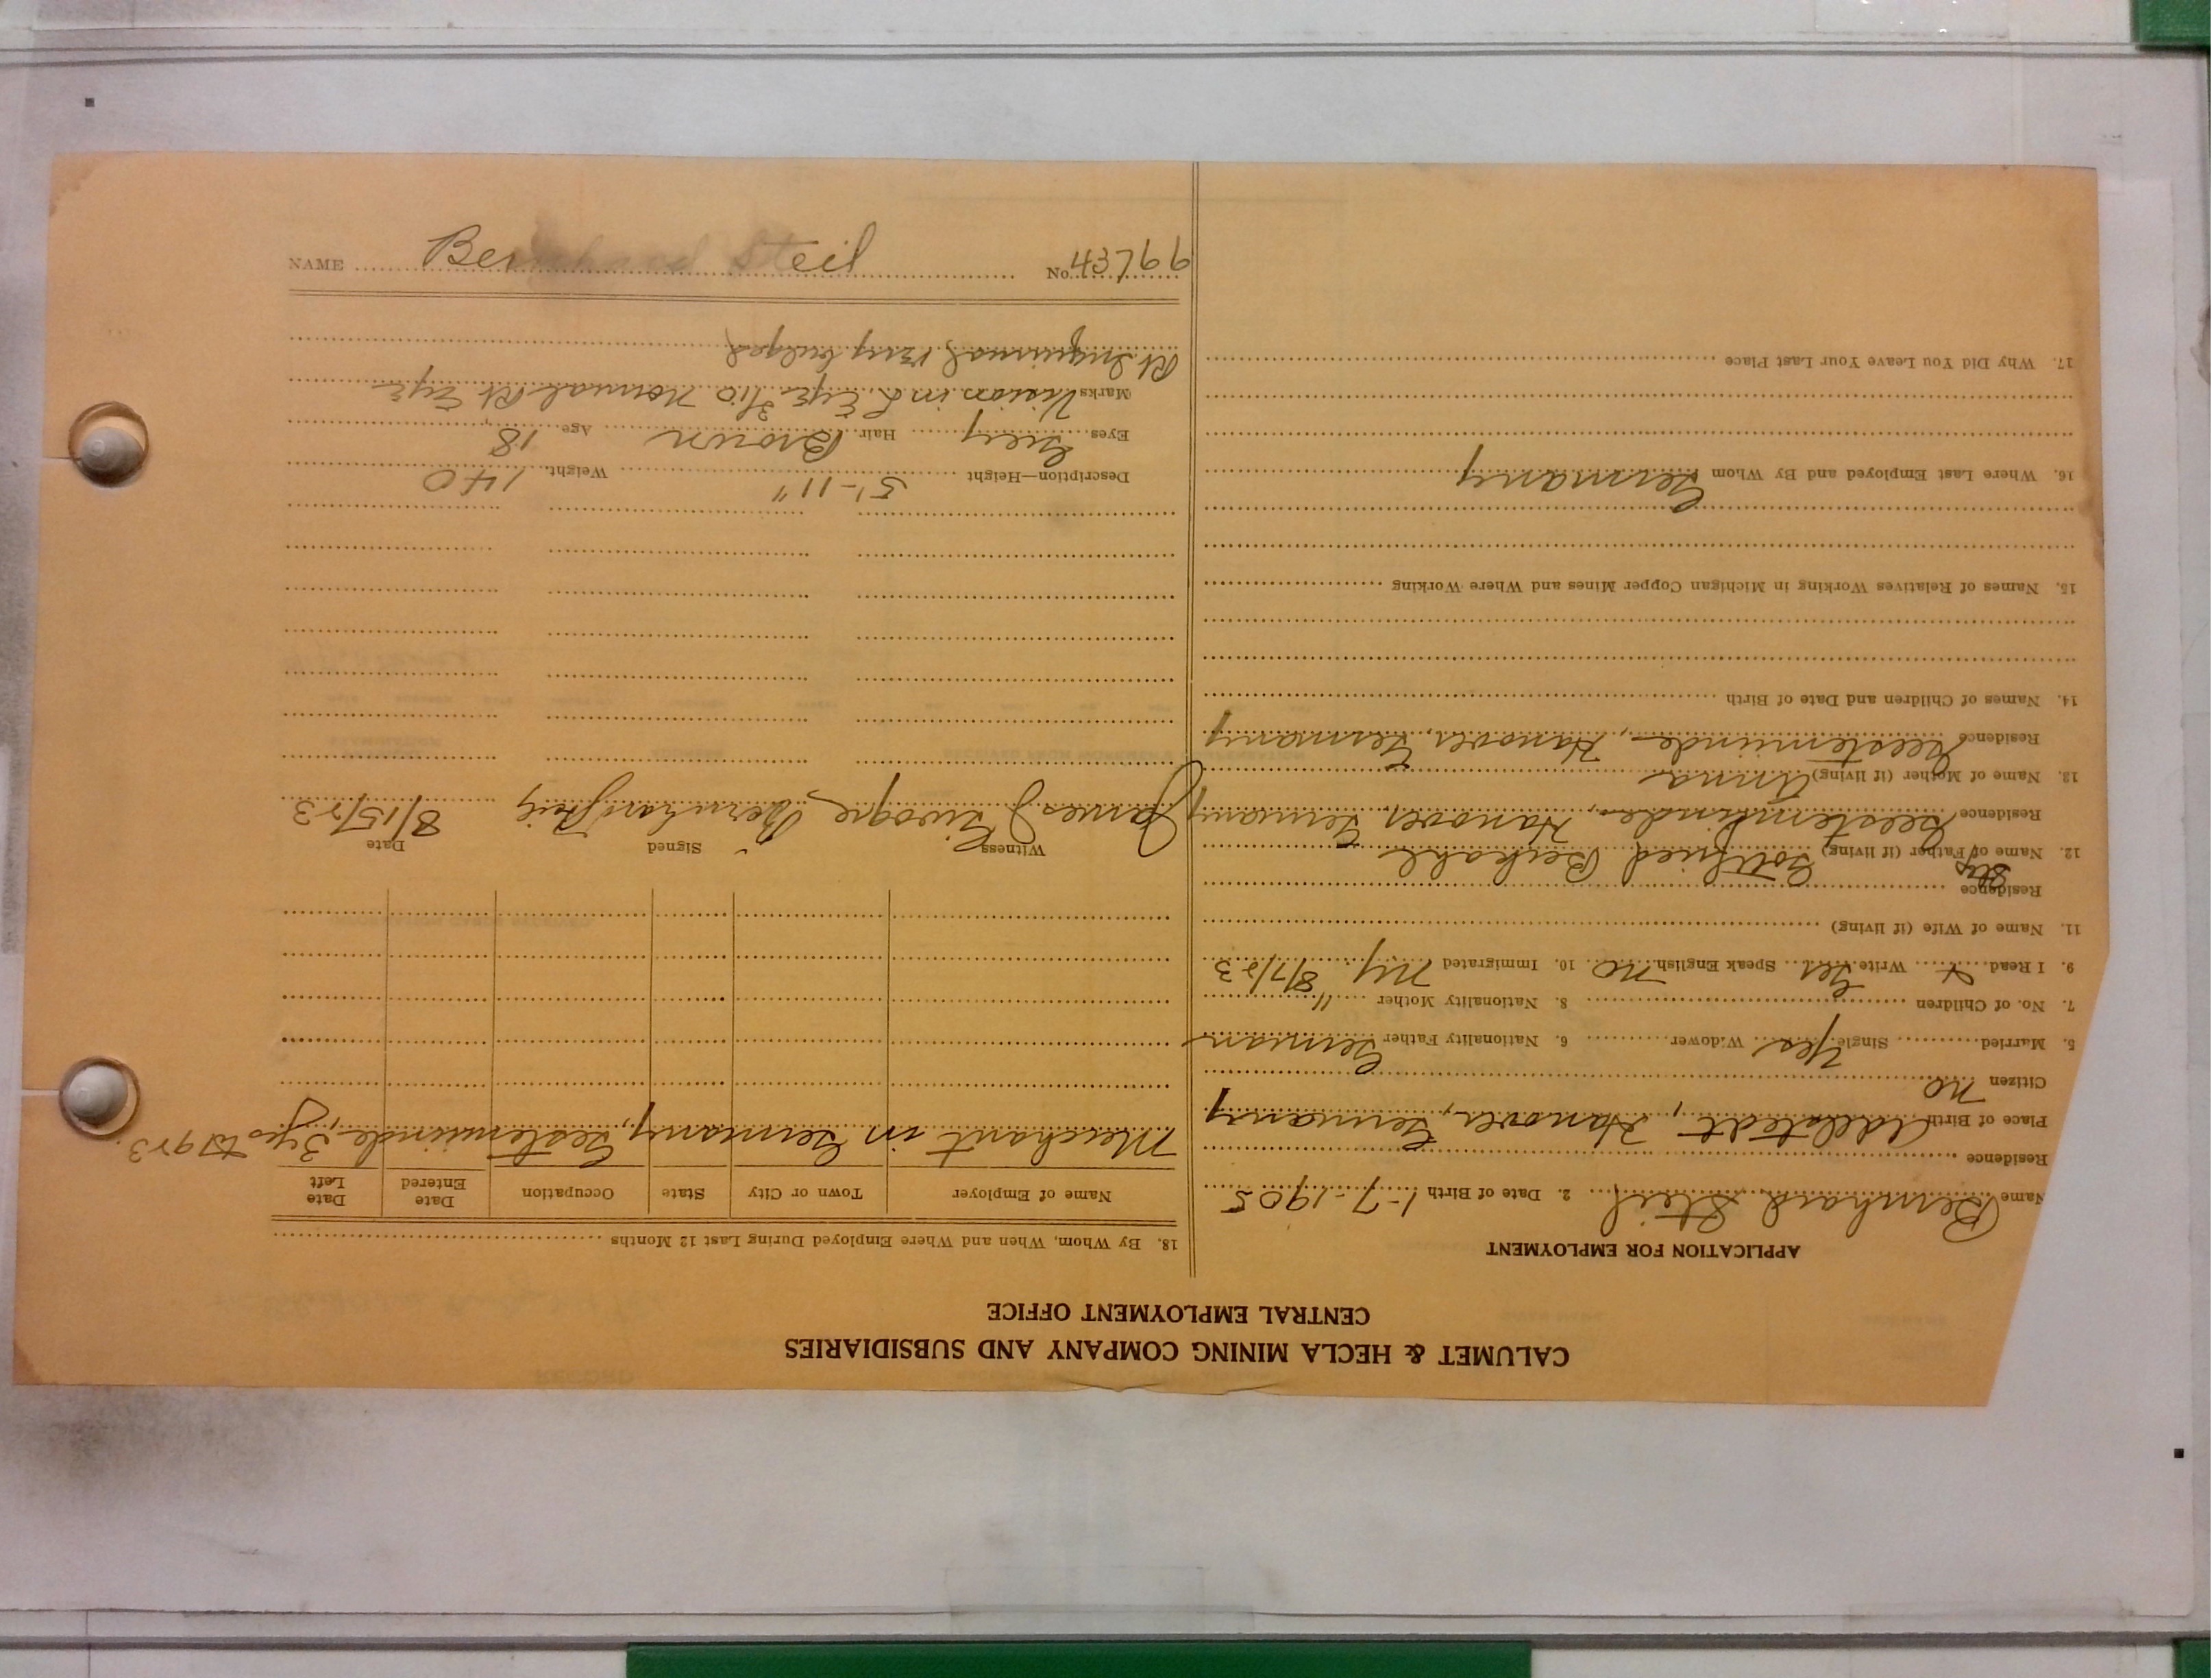 CALUMET & HECLA MINING COMPANY AND SUBSIDIARIES
CENTRAL EMPLOYMENT OFFICE
APPLICATION FOR EMPLOYMENT
Name Bernhard Steil 2. Date of Birth 1-7-1905
Residence
Place of Birth Adelstedt, Hanover, Germany
Citizen no
5. Married Single Yes Widower 6. Nationality Father German
7. No. of Children 8. Nationality Mother "
9. I Read x Write Ger Speak English no 10. Immigrated NY 8/7/23
11. Name of Wife (if living)
Residence
12. Name of Step Father (if living) Gottfried
Residence Geestemünde, Hanover, Germany
13. Name of Mother (if living) Anna
Residence Geestemünde, Hanover, Germany
14. Names of Children and Date of Birth
15. Names of Relatives Working in Michigan Copper Mines and Where Working
16. Where Last Employed and By Whom Germany
17. Why Did You Leave Your Last Place
18. By Whom, When and Where Employed During Last 12 Months
Name of Employer Town or City State Occupation Date Entered Date Left
Merchant in Germany, Gestemünde, 3 yrs to 1923.
Witness Signed Date
James J Bernhard Steil 8/15/23
Description—Height 5'-11" Weight 140
Eyes Grey Hair Brown Age 18
Marks Vision in L. Eye 3/10 Normal Rt Eye
Rt Inguinal ring bulged
NAME Bernhard Steil No. 43799